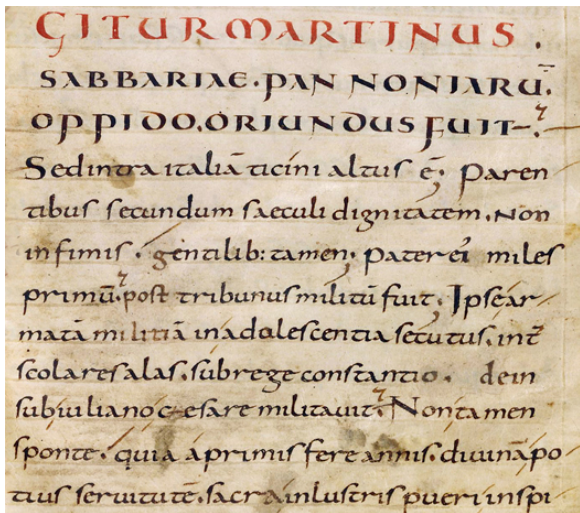 GITUR MARTINUS.
SABBARIAE. PANNONIARŪ
OPPIDO. ORIUNDUS FUIT.
Sed intra italiā ticini altus ē; Paren
tibus secundum saeculi dignitatem. Non
infimis. gentilib: tamen; Pater ei miles
primū. post tribunus militū fuit; Ipse ar
matā militiā in adolescentia secutus. int̄
scolares alas. sub rege constantio. dein
sub iuliano cęsare militavit. Non tamen
sponte. quia a primis fere annis. divinā po
tius servitutē. sacra inlustris pueri inspi